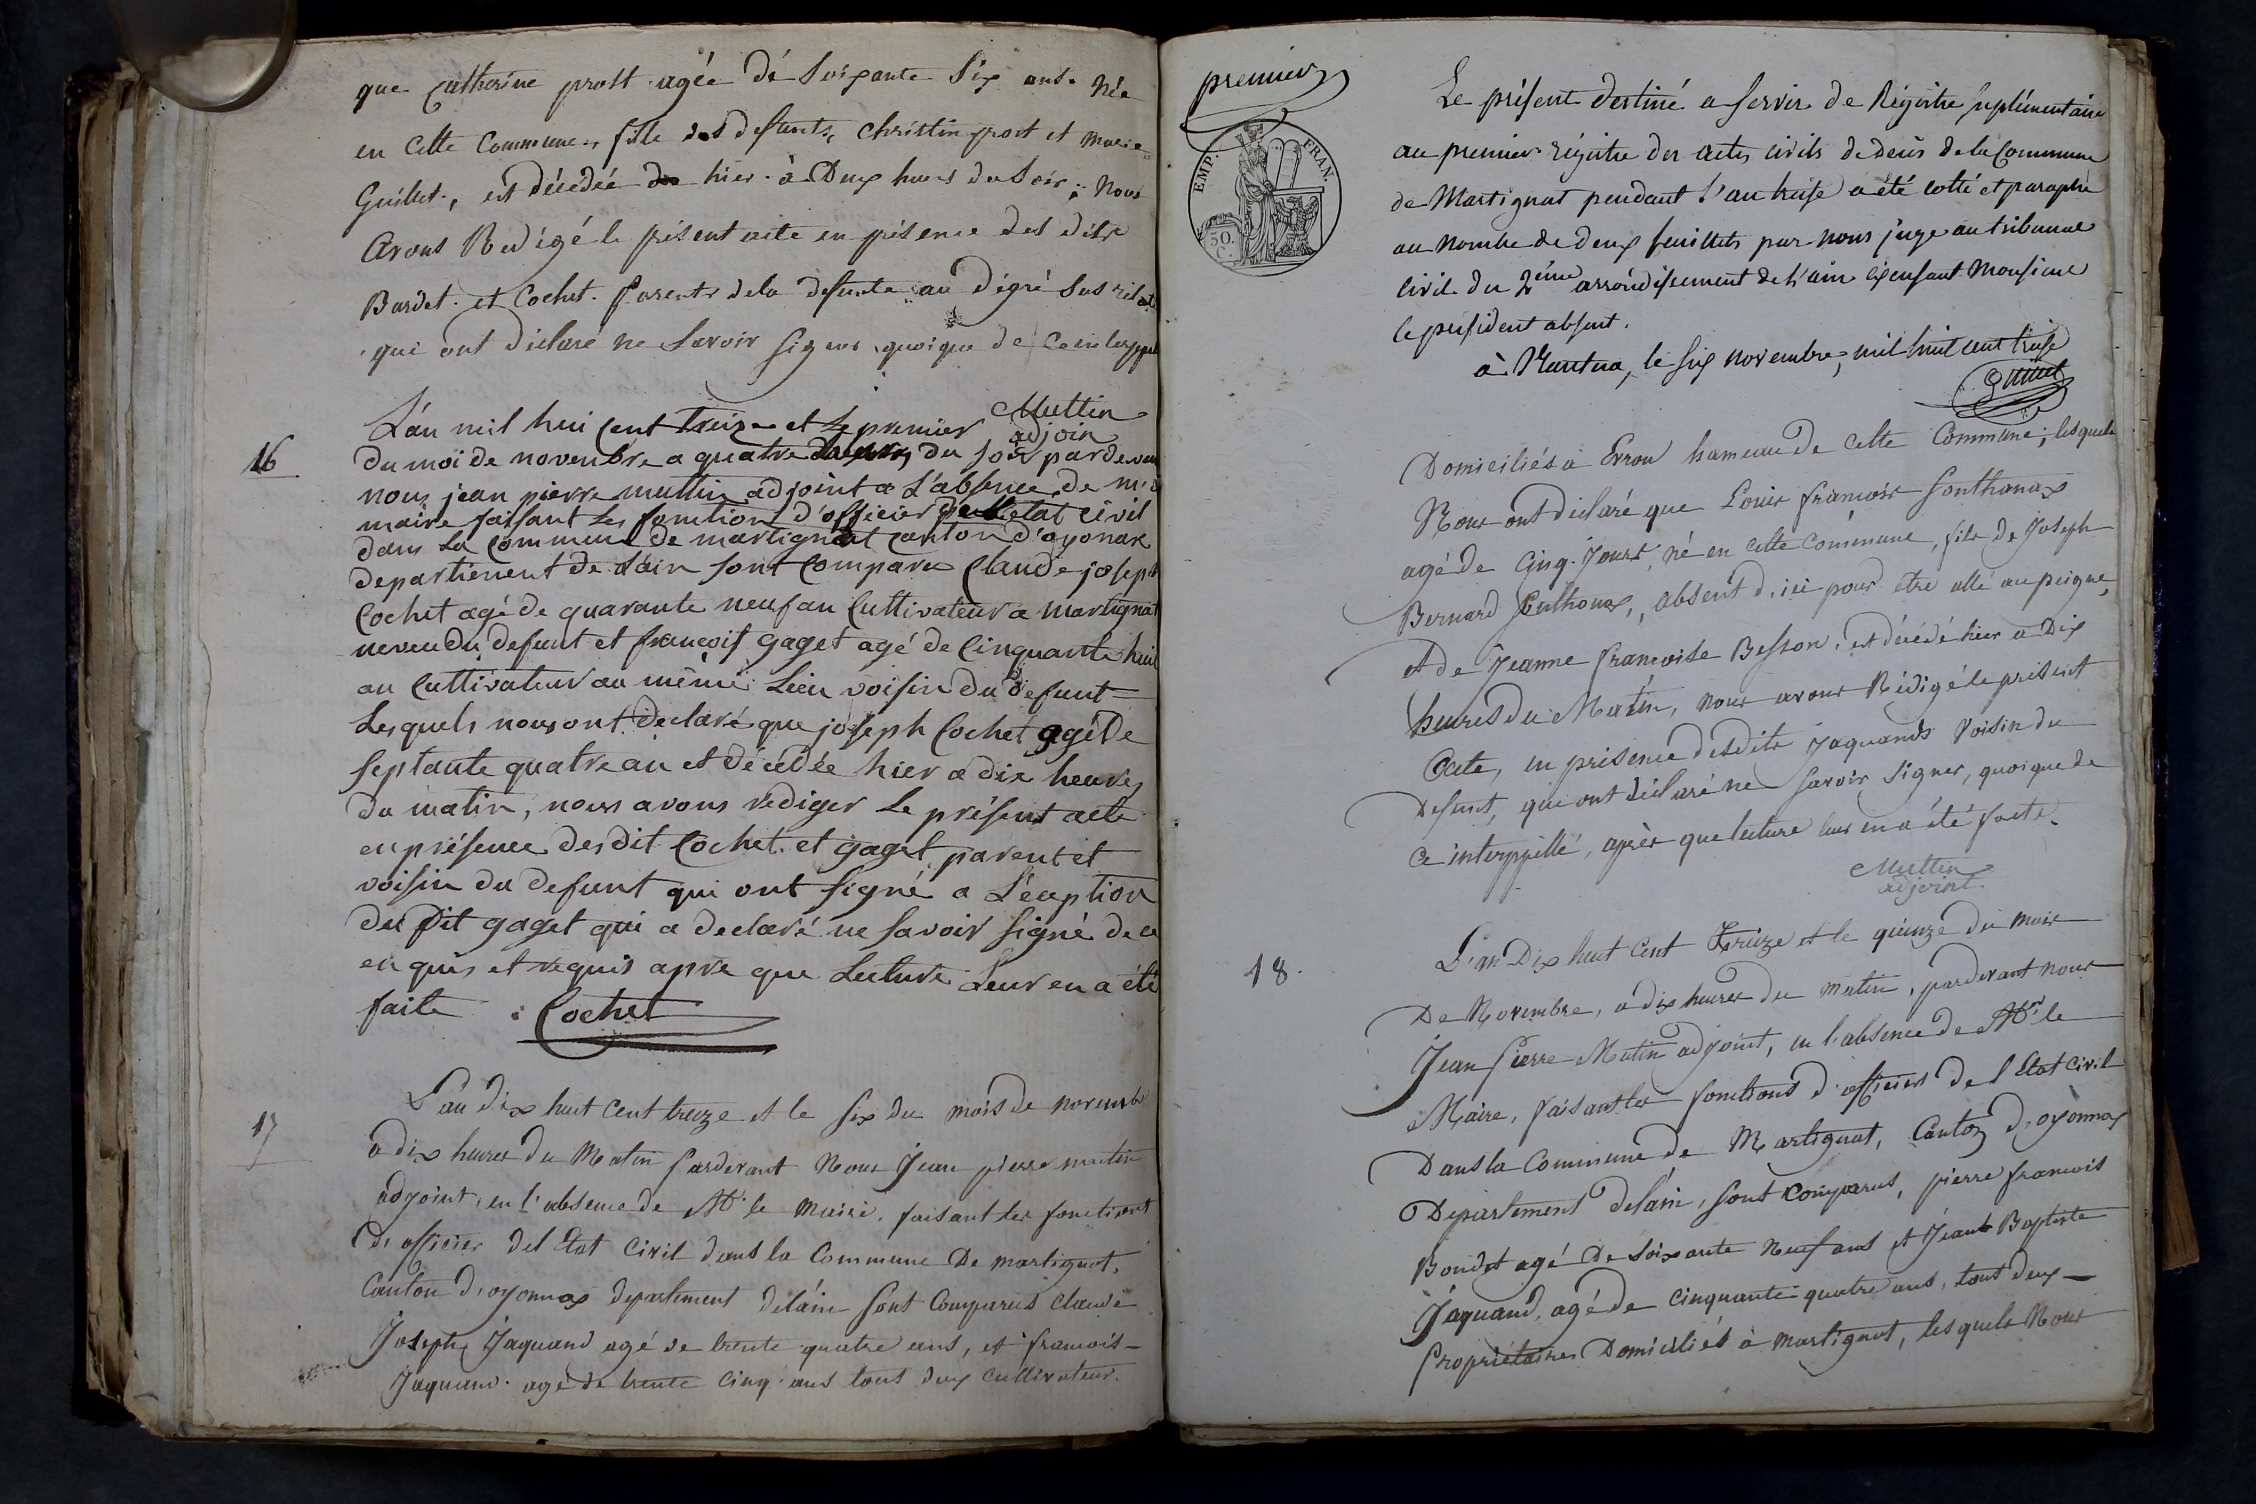 que Catherine prost agée de Soixante Six ans. Née
en cette Commune, fille des defunts, Christin prost et marie
Guillet, est décédée hier à Deux heures du Soir; Nous
Avons Redigé le présent acte en présence des dits
Bardet et Cochet Parents de la defunte au dégré Sus relaté
qui ont déclaré ne Savoir Signer quoique de Ce interppellé
Muttin
adjoin
16
L'an mil hui Cent treize et Le premier
du moi de novembre a quatre du soir pardevan
nous jean pierre muttin adjoint a L'absence de mr
maire faisant Les fonction d'officier de L'etat civil
dans La Commune de martignat canton d'oyonax
departienent de L'ain sont Comparu Claude joseph
Cochet agé de quarante neuf an Cultivateur a martignat
neveu du defunt et francois gaget agé de Cinquante huit
an Cultivateur au même Lieu voisin du defunt
Lesquels nous ont declaré que joseph Cochet agé de
septante quatre an et décédée hier a dix heures
du matin, nous avons rediger Le présent acte
en présence desdit Cochet et gaget parent et
voisin du defunt qui ont signé a L'éception
du dit gaget qui a declaré ne savoir signé de ce
en quis et requis apre que Lecture Leur en a été
faite Cochet
17
L'an dix huit Cent treize et le Six du mois de novembre
a dix heures du Matin Pardevant Nous Jean pierre mutin
adjoint, en l'absence de Mr. le Maire, faisant les fonctions
d'officier de l'Etat Civil dans la Commune De martignat,
Canton d'oyonnax departement de lain Sont Comparus Claude
Joseph Jaquand agé de trente quatre ans, et francois
Jaquand agé de trente Cinq ans tous deux Cultivateur.
premier
EMP. FRAN.
50.
C.
Le présent destiné a servir de Régistre suplémentaire
au premier régistre des actes civils de décès de la Commune
de Martignat pendant l'an treise a été cotté et paraphé
au nombre de deux feuillets par nous juge au tribunal
civil du 2ème arrondissement de l'ain épensant Monsieur
le president absent.
à Nantua, le six novembre, mil huit cent treise
Domiciliés a Evron hameau de cette Commune; lesquels
Nous ont déclaré que Louis francois Sonthonax
agé de Cinq Jours, né en cette commune, fils de Joseph
Bernard Sonthonax, absent d'ici pour être allé au peigne,
et de Jeanne francoise Besson, est décédé hier a Dix
heures du Matin, nous avons Rédigé le présent
Acte, en présence desdits Jaquands Voisin du
Defunt, qui ont déclaré ne Savoir Signer, quoique de
Ce interppellé, après que lecture leur en a été faite.
Muttin
adjoint.
18.
L'an Dix huit Cent treize et le quinze du mois
De Novembre, a dix heures du matin, pardevant nous
Jean Pierre Mutin adjoint, en l'absence de Mr le
Maire, faisant les fonctions d'officier de l'Etat Civil
Dans la Commune de Martignat, Canton d'oyonnax
Departement de lain, Sont Comparus, pierre francois
Bondet agé De Soixante Neuf ans et Jean Baptiste
Jaquand, agé de Cinquante quatre ans, tout deux
Propriétaires Domiciliés à martignat, lesquels Nous